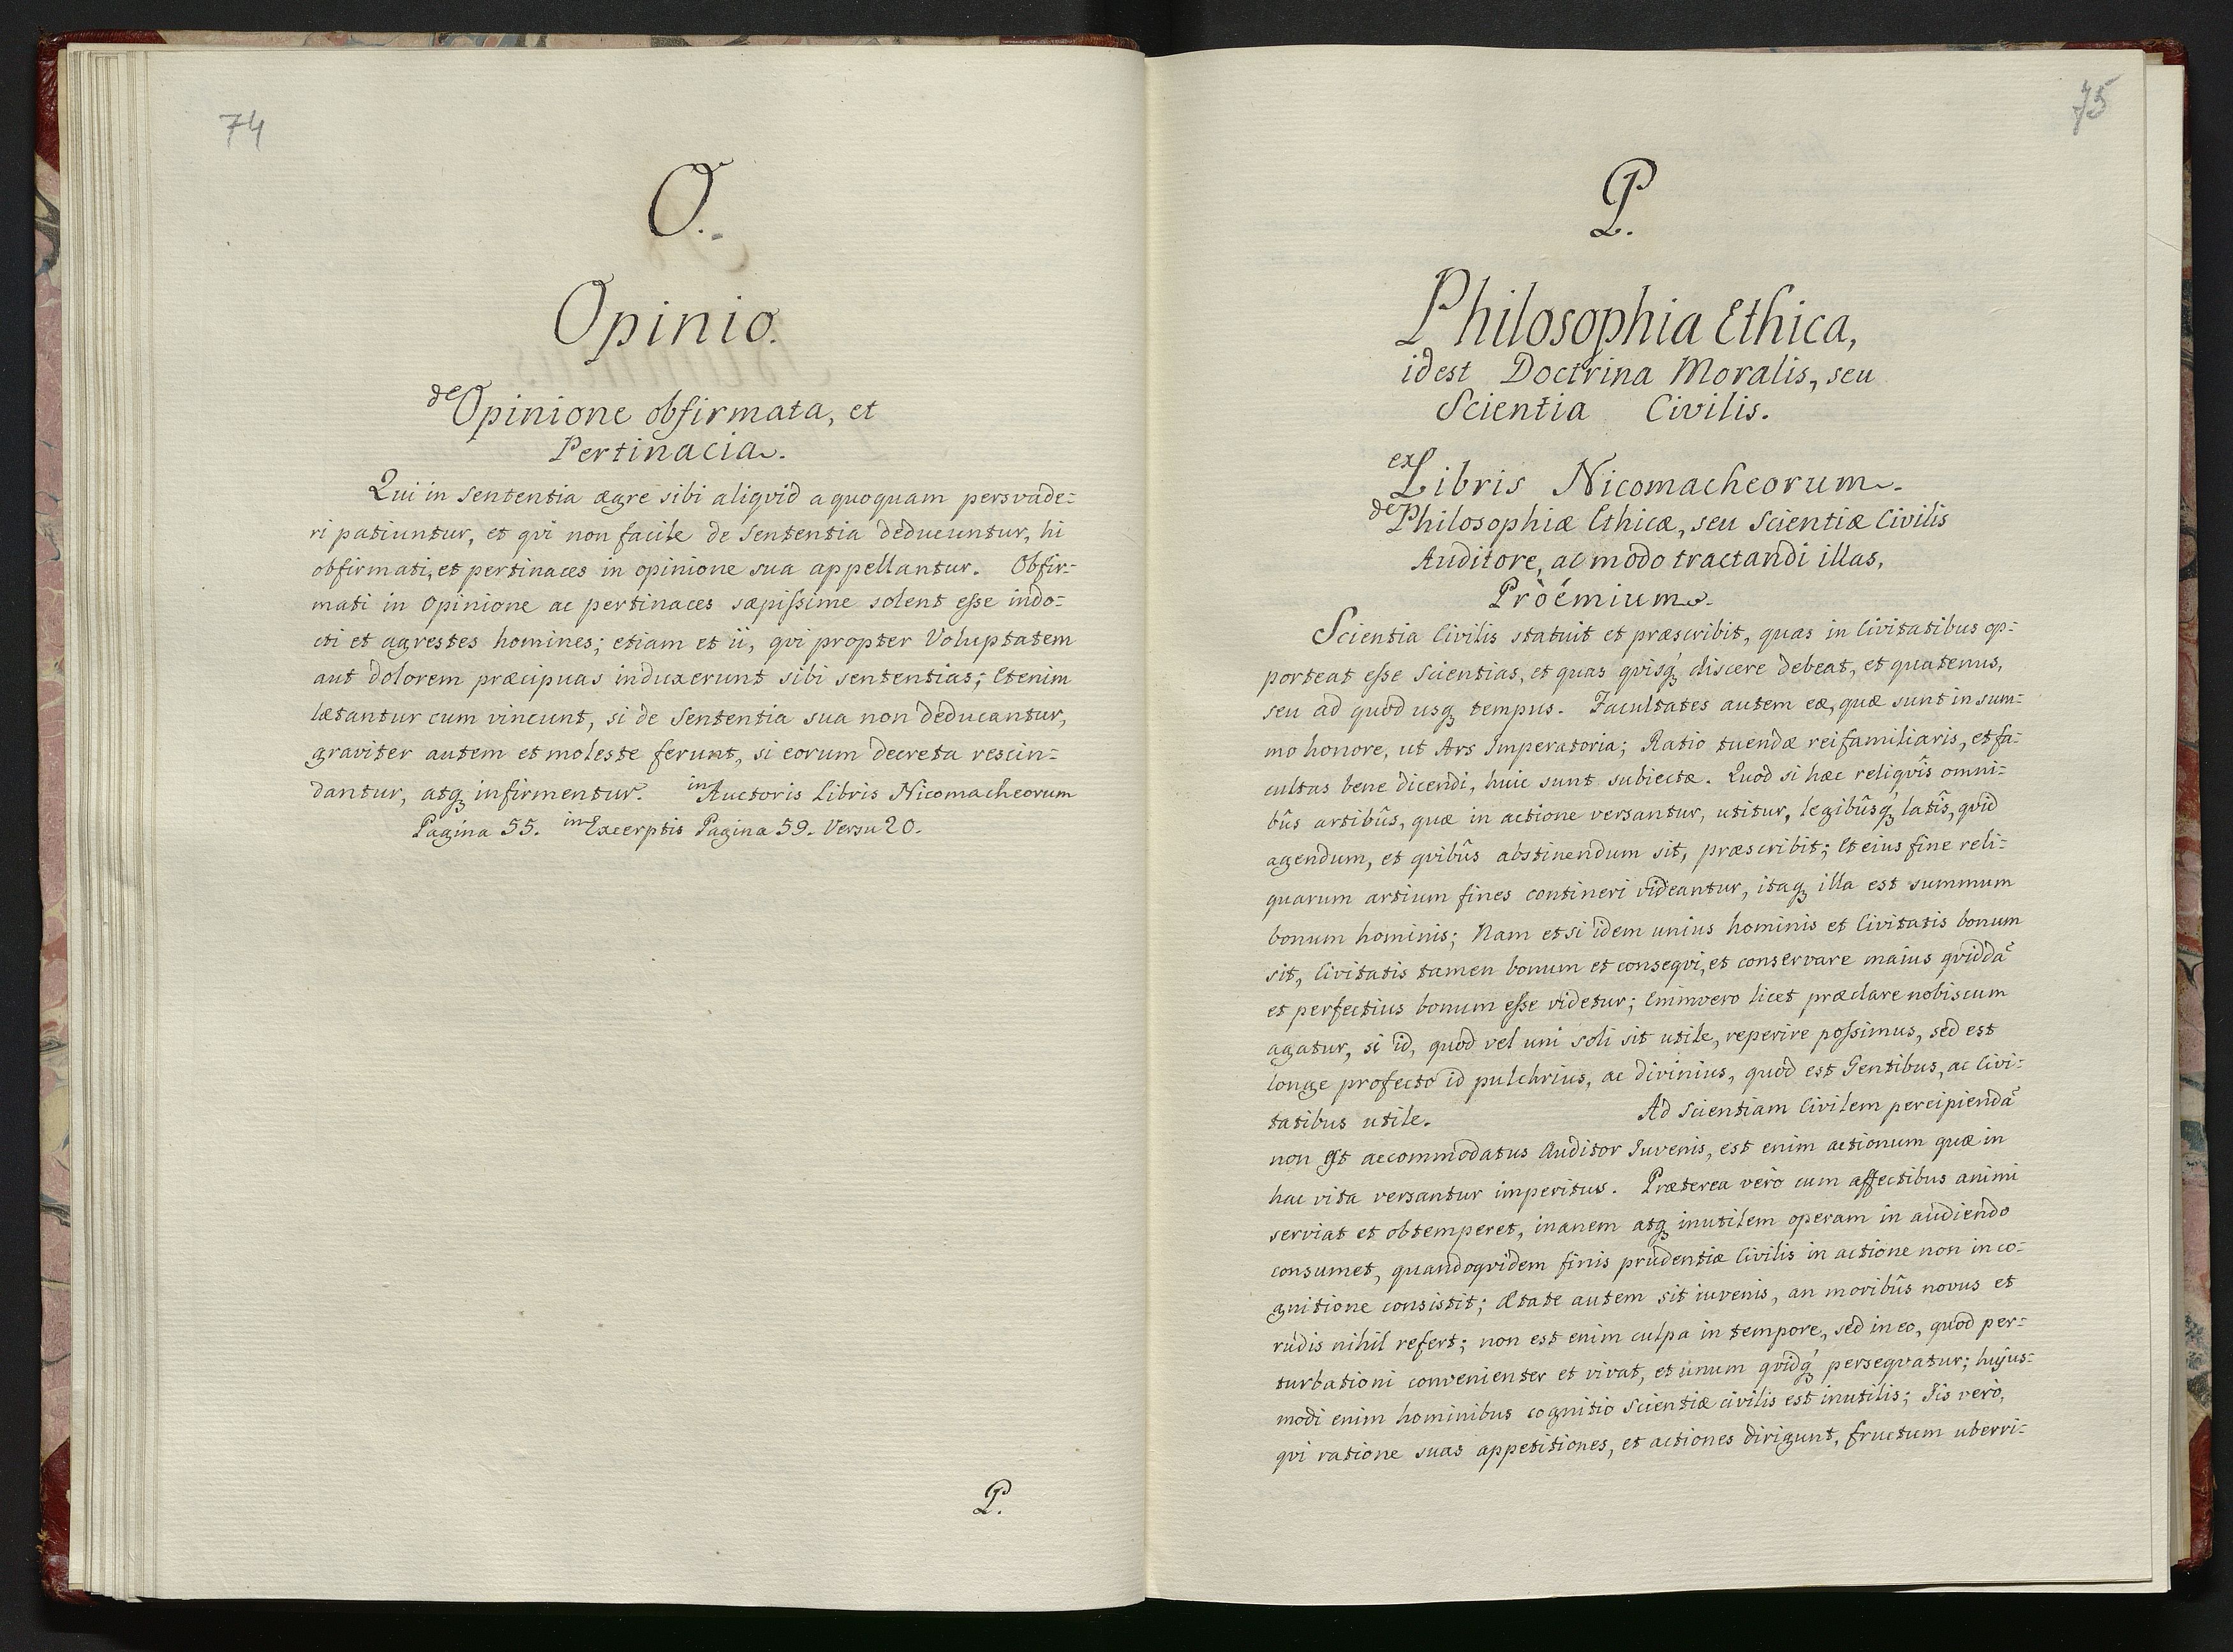 74
O.
Opinio.
de Opinione obfirmata, et
Pertinacia.
Qui in sententia ægre sibi aliqvid a quoquam persvade-
ri patiuntur, et qvi non facile de sententia deducuntur, hi
obfirmati, et pertinaces in opinione sua appellantur. Obfir-
mati in Opinione ac pertinaces sæpissime solent esse indo-
cti et agrestes homines; etiam et ii, qvi propter Voluptatem
aut dolorem præcipuas induxerunt sibi sententias; Etenim
lætantur cum vincunt, si de sententia sua non deducantur,
graviter autem et moleste ferunt, si eorum decreta rescin-
dantur, atqꝫ infirmentur. in Auctoris Libris Nicomacheorum
Pagina 55. in Excerptis Pagina 59. Versu 20.
P.
75
P.
Philosophia Ethica,
id est Doctrina Moralis, seu
Scientia Civilis.
ex Libris Nicomacheorum.
de Philosophiæ Ethicæ, seu Scientiæ Civilis
Auditore, ac modo tractandi illas,
Pròémium.
Scientia Civilis statuit et præscribit, quas in Civitatibus op-
porteat esse scientias, et quas qvisqꝫ́ discere debeat, et quatenus,
seu ad quod usqꝫ tempus. Facultates autem eæ, quæ sunt in sum-
mo honore, ut Ars Imperatoria; Ratio tuendæ rei familiaris, et fa-
cultas bene dicendi, huic sunt subiectæ. Quod si hæc reliqvîs omni-
bûs artibûs, quæ in actione versantur, utitur, legibûsqꝫ́ latîs, qvid
agendum, et qvibûs abstinendum sit, præscribit; Et eius fine reli-
quarum artium fines contineri videantur, itaqꝫ illa est summum
bonum hominis; Nam etsi idem unius hominis et Civitatis bonum
sit, Civitatis tamen bonum et conseqvi, et conservare maius qviddã
et perfectius bonum esse videtur; Enimvero licet præclare nobiscum
agatur, si id, quod vel uni soli sit utile, reperire possimus, sed est
longe profecto id pulchrius, ac divinius, quod est Gentibus, ac Civi-
tatibus utile. Ad Scientiam Civilem percipiendã
non est accommodatus Auditor Iuvenis, est enim actionum quæ in
hac vita versantur imperitus. Præterea verò cum affectibus animi
serviat et obtemperet, inanem atqꝫ inutilem operam in audiendo
consumet, quandoqvidem finis prudentiæ Civilis in actione non in co-
gnitione consistit; Ætate autem sit iuvenis, an moribûs novus et
rudis nihil refert; non est enim culpa in tempore, sed in eo, quod per-
turbationi convenienter et vivat, et unum qvidqꝫ́ perseqvatur; hujus-
modi enim hominibus cognitio scientiæ civilis est inutilis; Iis verò,
qvi ratione suas appetitiones, et actiones dirigunt, fructum uberri-